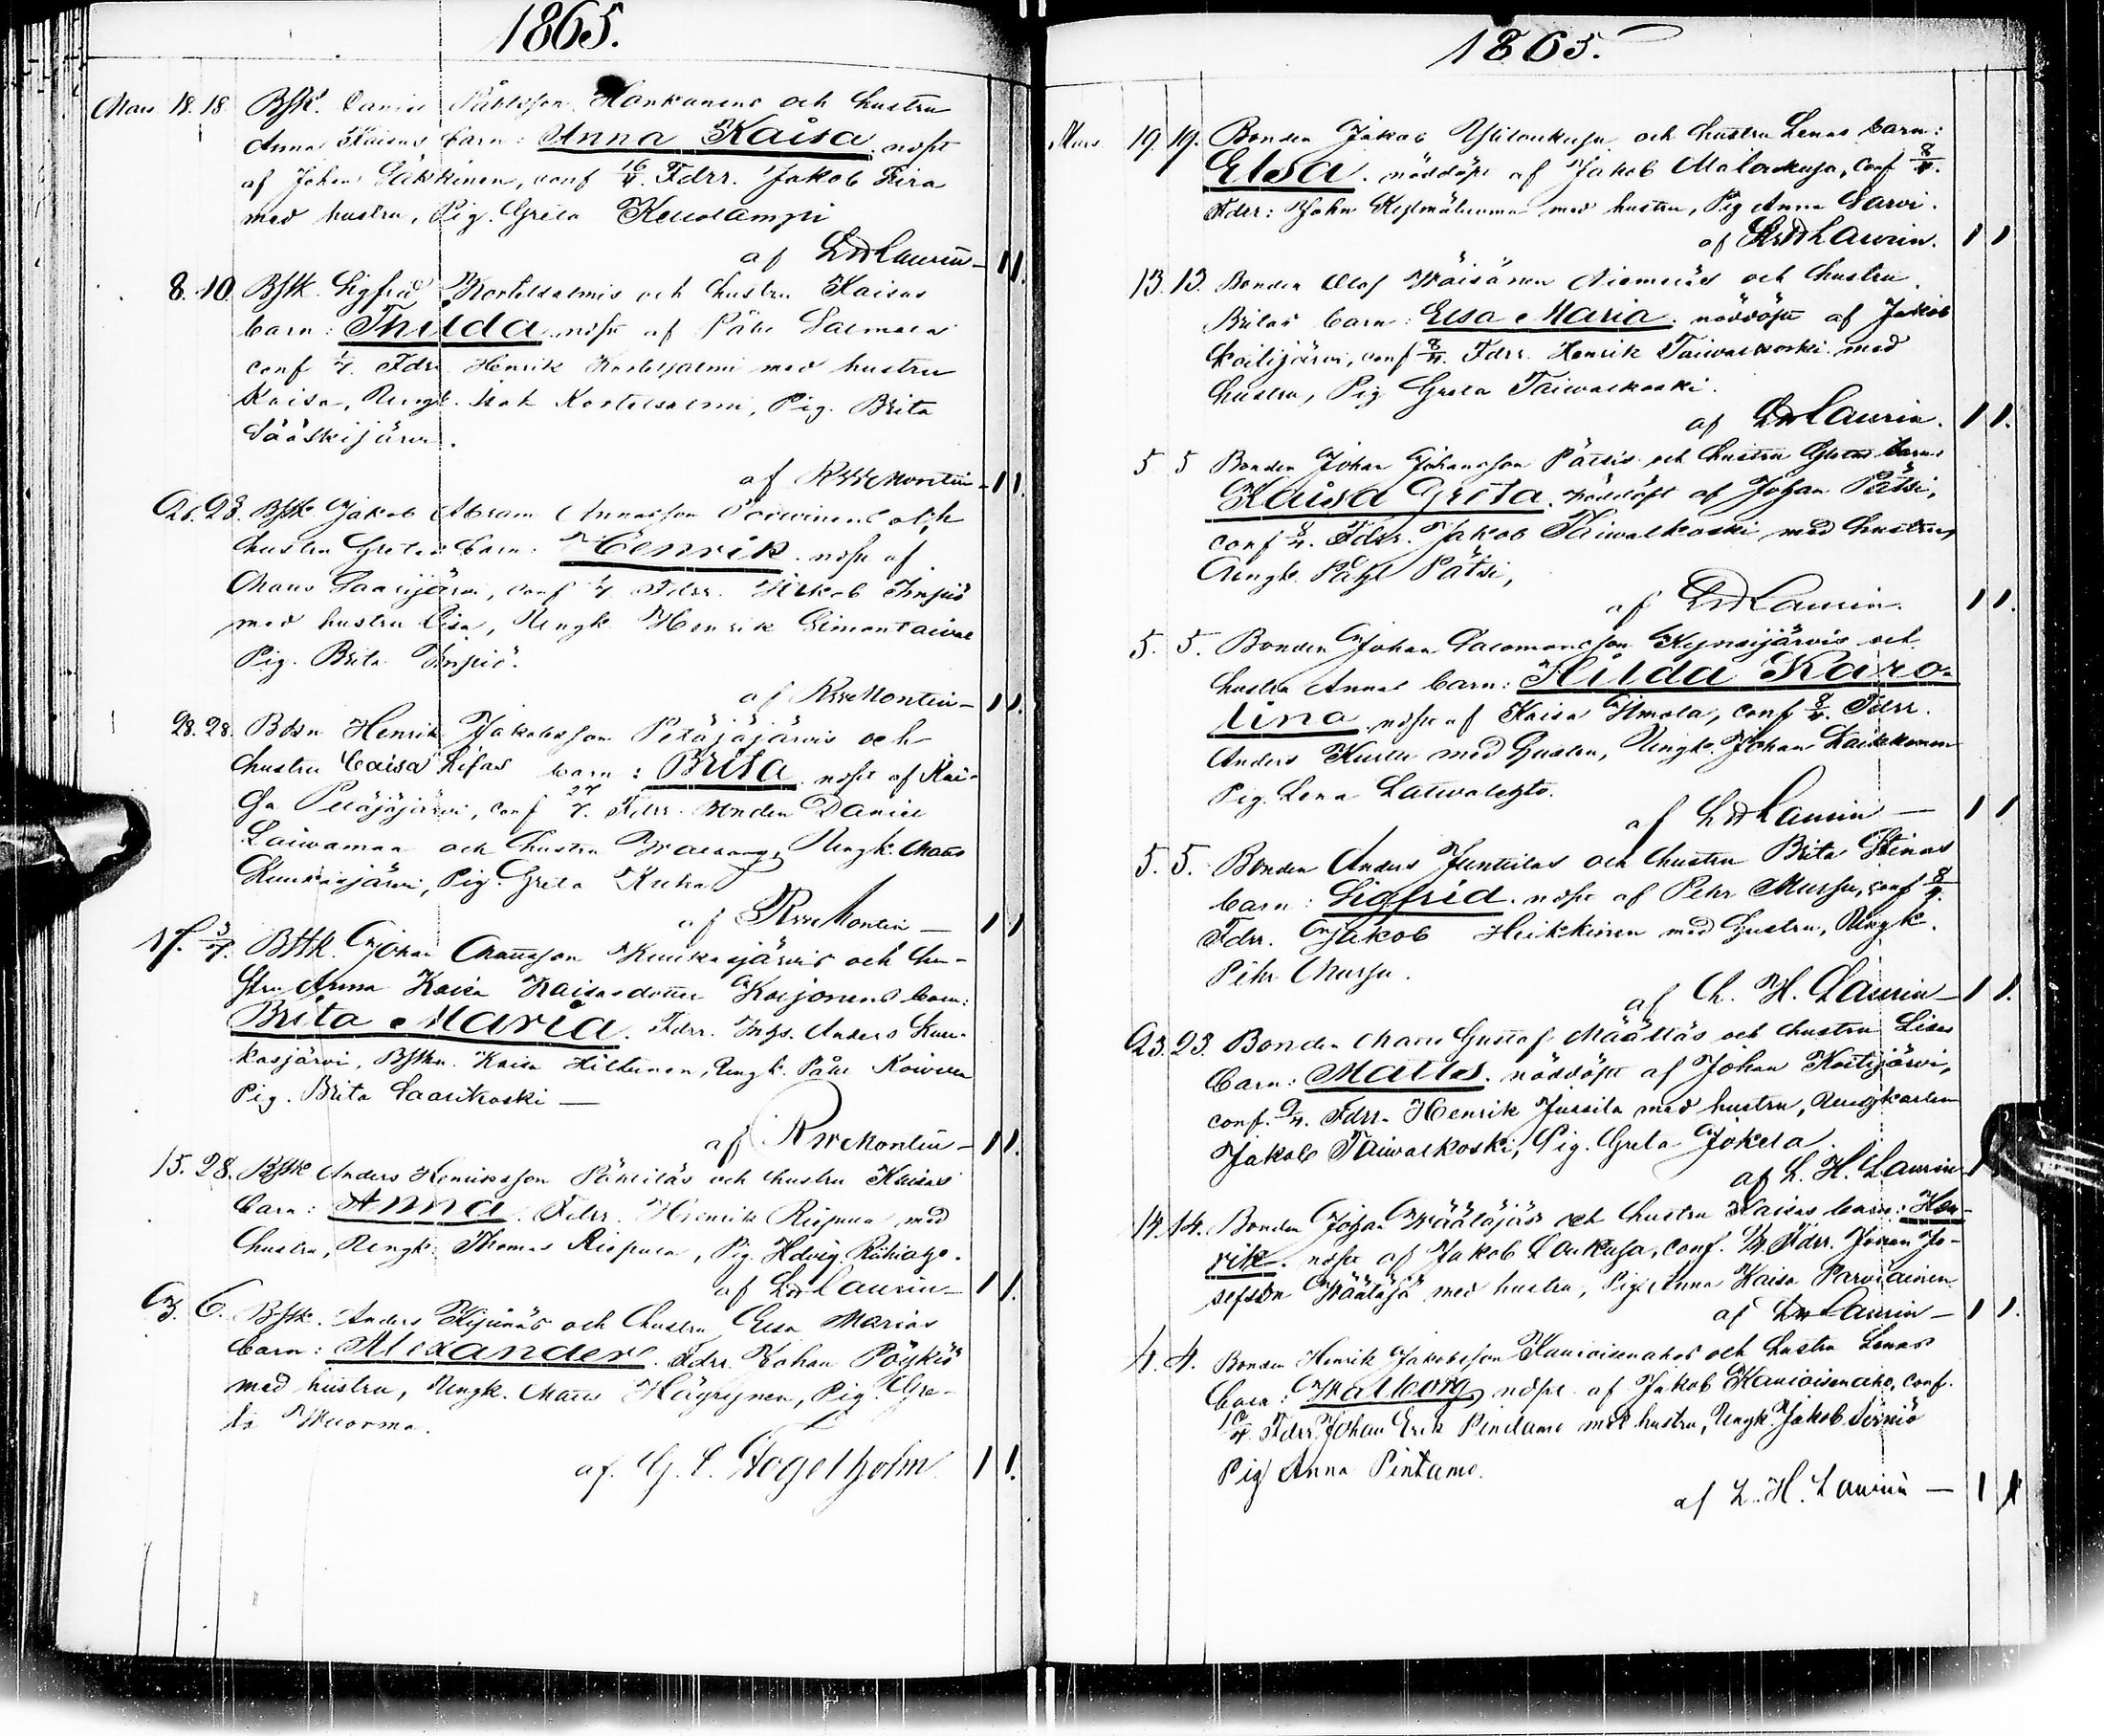 1865.
Mars 18. 18. Bstk. Daniel Påhlsson Hankanens och hustru
Anna Kaisas barn: Anna Kaisa. nöpt
af Johan Säkkinen, conf 16/4. Fdrr. Jakob
med hustru, Pig. Greta Keuolampi
af L H Laurin — 1 1.
8. 10. Bstk. Sigfrid Kortelsalmis och hustru Kaisas
barn: Thilda nöpt af Påhl Salmela
conf 1/4. Fdrr Henrik Kortelsalmi med hustru
Kaisa, Dengk. Isak Kortelsalmi, Pig. Brita
Sääskijärvi.
af R W Montin — 1 1.
23. Bstk Jakob Abram Annasson och
hustru Gretas barn: Henrik. nöpt af
Mans Saarijärvi, conf 1/4 Fdrr. Jakob Inpiö
med hustru Lisa, Dengk Henrik Simontaival
Pig. Brita Inpiö.
af R W Montin — 1 1.
28. 28. Bdn Henrik Jakobsson Petäjäjärvis och
hustru Caisa Lisas barn: Brita nöpt af Kai-
sa Petäjäjärvi, conf 27/7. Fdrr. Bonden Daniel
Laiwamaa och hustru Walborg, Dengk. Mans
Kuukasjärvi, Pig. Greta Kuha
af R W Montin — 1 1
17. 3/4. Bstk. Johan Mansson Kuukasjärvis och hu-
stru Anna Kaisa Kaisasdotter Korjonens barn:
Brita Maria. Fdrr. Anders Kuu-
kasjärvi, Bstkn. Kaisa Hiltunen, Dengk. Påhl Koivula
Pig. Brita Saarikoski —
af R W Montin — 1 1.
15. 28. Bstk Anders Henriksson och hustru Kaisas
barn: Anna. Fdrr. Henrik Riepula med
hustru, Dengk. Thomas Riepula, Pig. Hdvig
af L H Laurin — 1 1.
3. 6. Bstk. Anders och hustru Elsa Marias
barn: Alexander. Fdrr. Johan Pöykiö
med hustru, Dengk. Mans Häyrynen, Pig. Gre-
ta Wuorma.
af. G. L. Fogelholm 1 1.
1865.
Mars 19. 19. Bonden Jakob Yliloukusa och hustru Lenas barn:
Elsa. nöddöpt af Jakob Malankusa, conf 8/4.
Fdrr: John med hustru, Pig Anna Sarvi.
af L H Laurin. 1 1
13. 13. Bonden Olof Wäisänen Niemeläs och hustru
Britas barn: Elsa Maria. nöddöpt af Jakob
Kostijärvi, conf 8/4. Fdrr. Henrik Taiwalkoski med
hustru, Pig Greta Taiwalkoski.
af L H Laurin. 1 1.
5 5 Bonden Johan Johansson Pätsis och hustru Gretas barn
Kaisa Greta. nöddöpt af Johan Pätsi,
conf 8/4. Fdrr. Jakob Taiwalkoski med hustru,
Dengk. Påhl Pätsi,
af L H Laurin. 1 1.
5. 5. Bonden Johan Salomonsson Kynsijärvis och
hustru Annas barn: Hilda Karo-
lina nöpt af Kaisa Ilmola, conf 8/4. Fdrr.
Anders Kurtti med hustru, Dengk. Johan Laukkanen
Pig. Lena Latwalehto.
af L H Laurin — 1 1
5. 5. Bonden Anders Junttilas och hustru Brita Stinas
barn: Sigfrid. nöpt af Pehr Mursu, conf 8/4.
Fdrr. Jakob Heikkinen med hustru, Dengk.
Pehr Mursu.
af L. H. Laurin — 1 1.
23. 23. Bonden Mans Gustaf Määttäs och hustru Lisas
barn: Matts. nöddöpt af Johan Kostijärvi,
conf. 9/4. Fdrr. Henrik Jussila med hustru, Dengkarlen
Jakob Taiwalkoski, Pig. Greta Jokela.
af L. H. Laurin 1
14. 14. Bonden Johan Wääläjäs och hustru Kaisas barn: Hen-
rik. nöpt af Jakob Loukusa, conf. Fdrr. Johan Jo-
sefson Wääläjä med hustru, Pig. Anna Kaisa Parviainen
af L H Laurin — 1 1.
4. 4. Bonden Henrik Jakobsson Kauioisenahos och hustru Lenas
barn: Walborg, nöpt af Jakob Kauioisenaho, conf.
10/4. Fdrr. Johan Erik Pintamo med hustru, Dengk. Jakob Särkiö
Pig Anna Pintamo.
af L. H. Laurin — 1 1